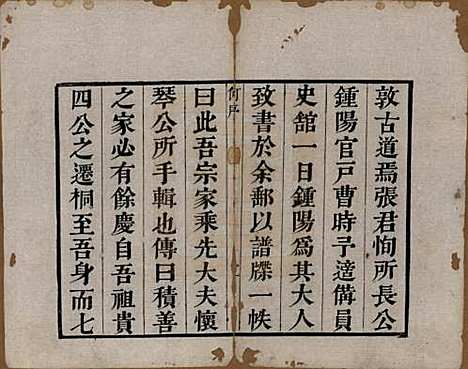 敦古道焉張君恂所長公
鍾陽官戸曹時予適備員
史舘一日鍾陽爲其大人
致書於余鄱以譜牒一帙
曰此吾宗家乘先大夫懷
琴公所手輯也傳曰積善
之家必有餘慶自吾祖貴
四公之遷桐至吾身而七